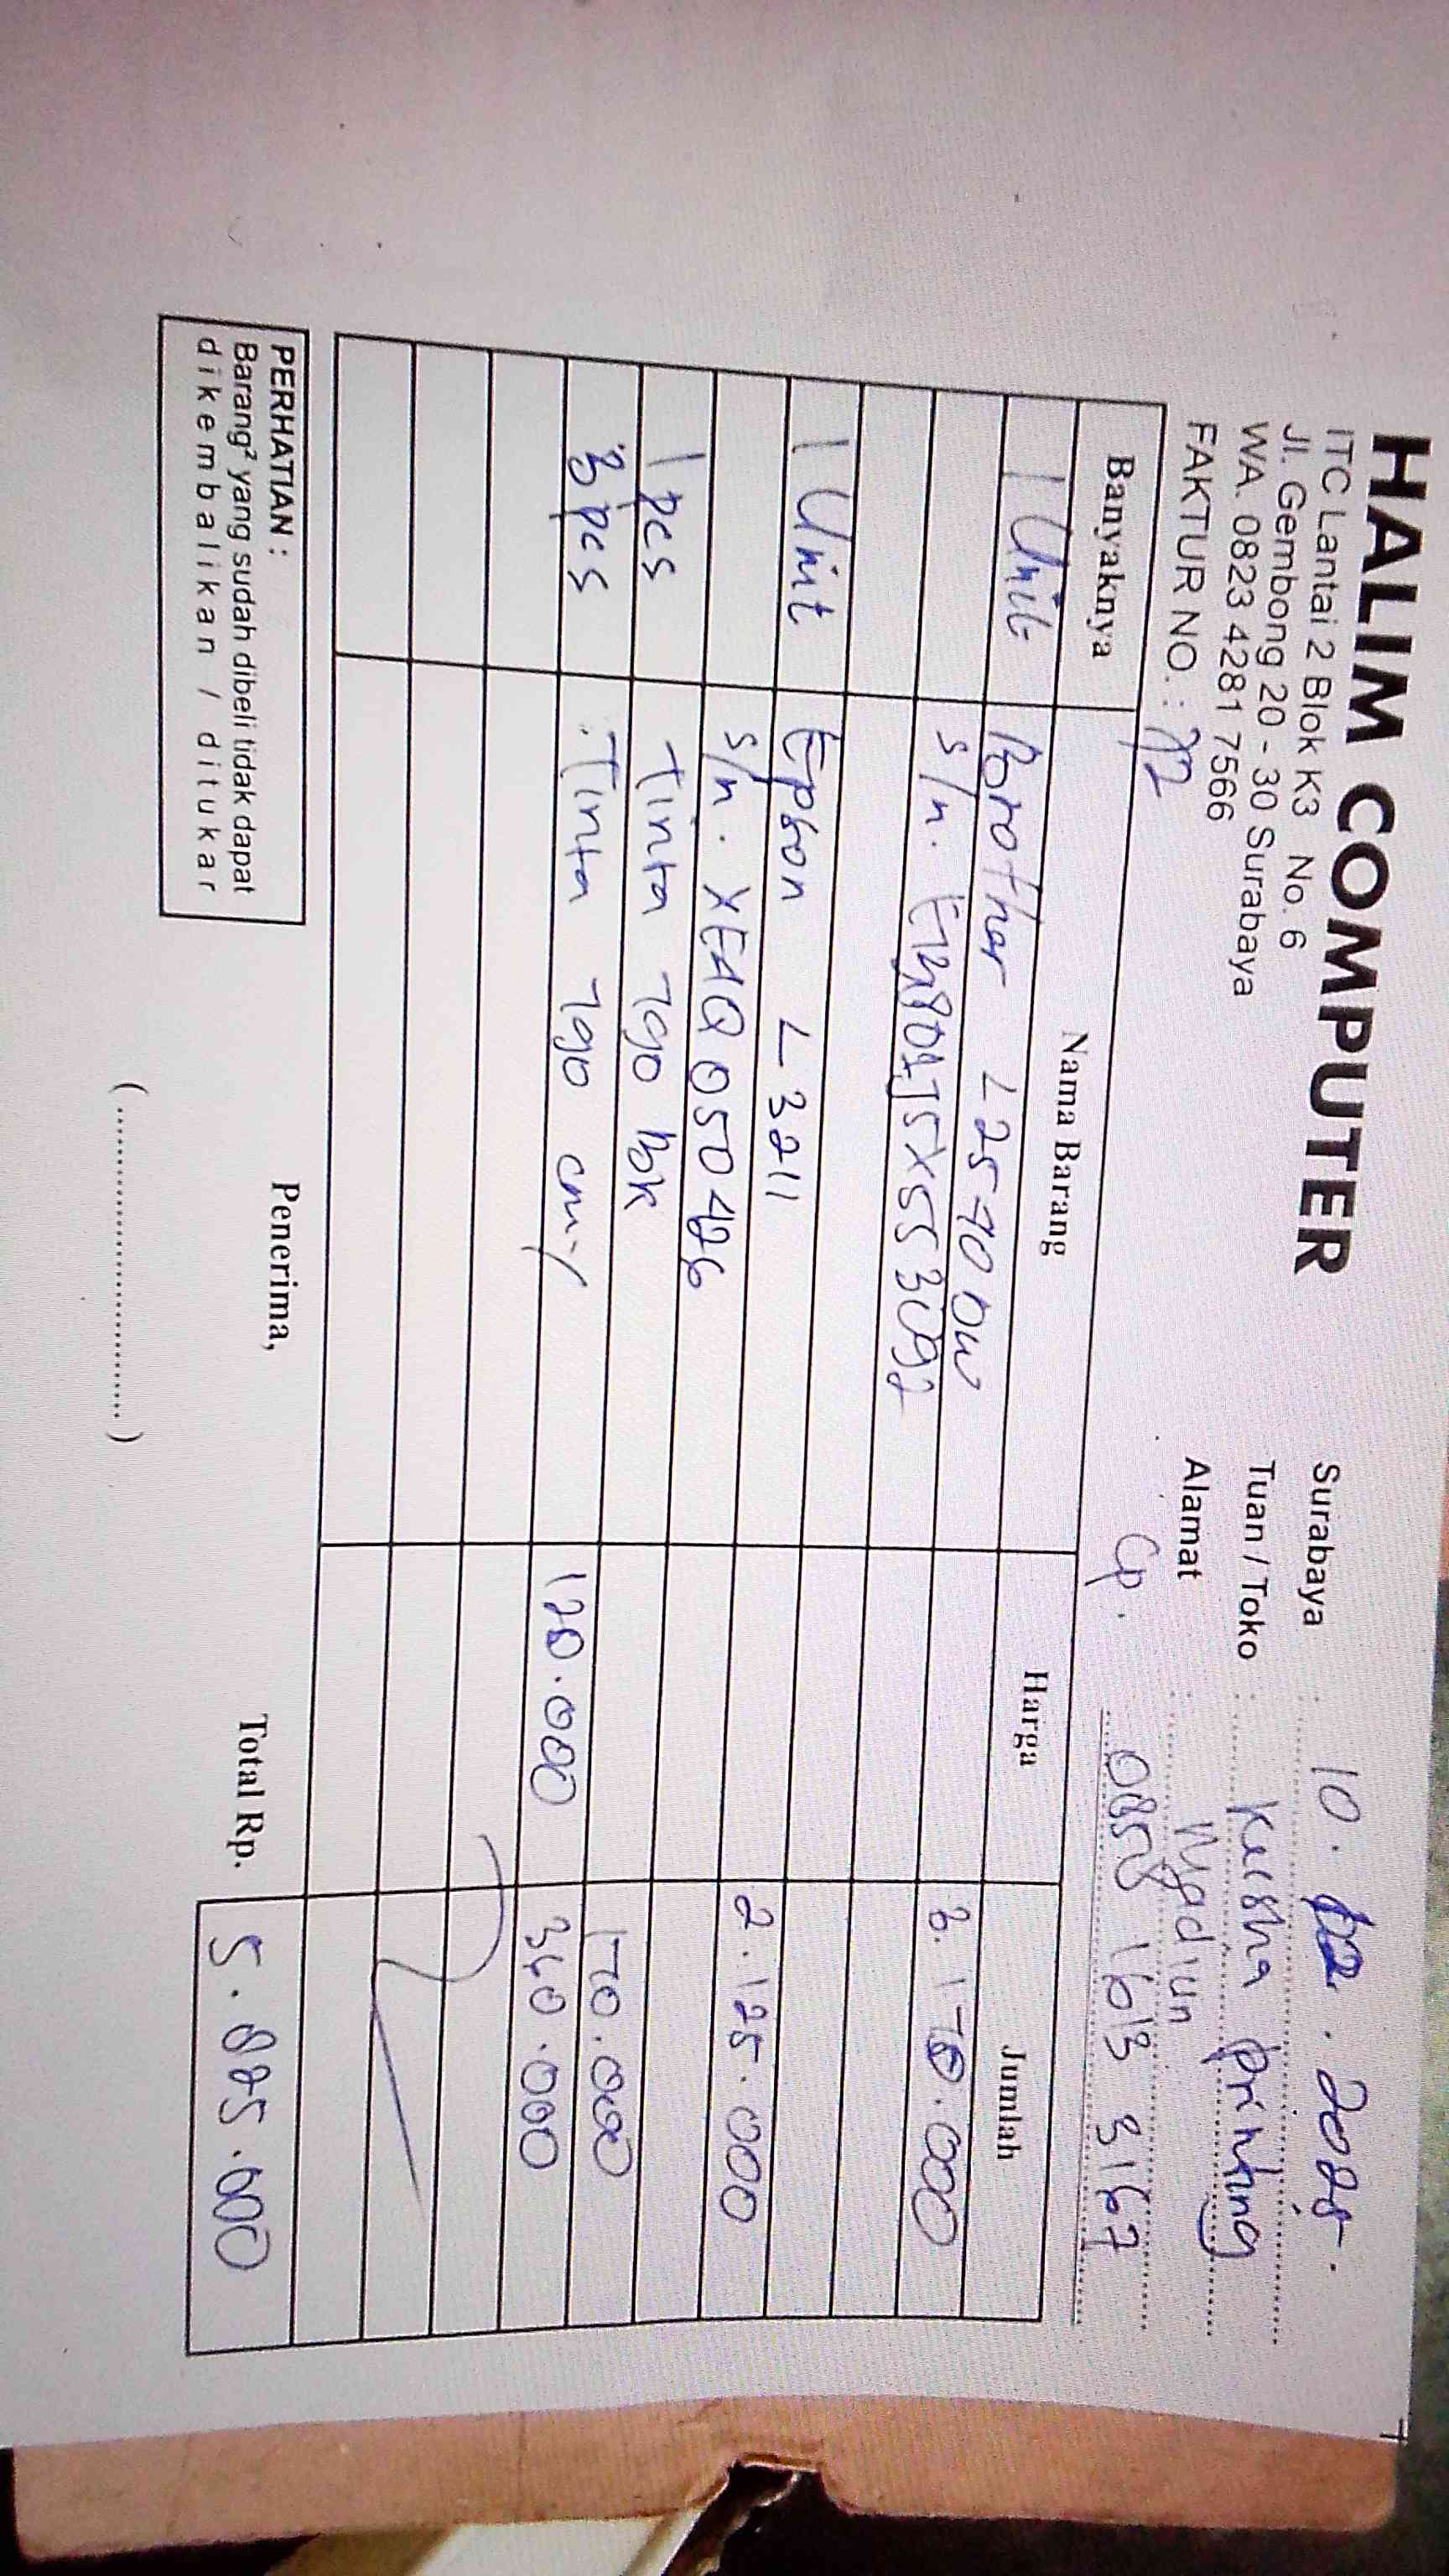 HALIM COMPUTER
ITC Lantai 2 Blok K3 No. 6
Jl. Gembong 20 - 30 Surabaya
WA. 0823 4281 7566
FAKTUR NO. :
Surabaya : 10. 02. 2025.
Tuan / Toko : Kusha printing
Alamat : Madiun
Cp. 0858 1613 3167
Banyaknya Nama Barang Harga Jumlah
1 Unit Brother L2540DW 3.170.000
s/n.
1 Unit Epson L3211 2.125.000
s/n. XEAQ050426
1 pcs Tinta 790 BK 170.000
3 pcs Tinta 790 cmy 120.000 360.000
PERHATIAN :
Barang² yang sudah dibeli tidak dapat
dikembalikan / ditukar
Penerima,
(..............................)
Total Rp. 5.825.000